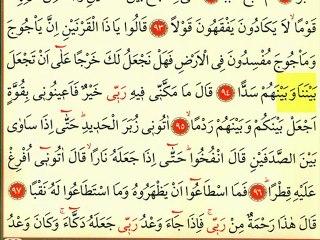 قَوْمًا لَا يَكَادُونَ يَفْقَهُونَ قَوْلًا ﴿٩٣﴾ قَالُوا يَاذَا الْقَرْنَيْنِ إِنَّ يَأْجُوجَ
وَمَأْجُوجَ مُفْسِدُونَ فِي الْأَرْضِ فَهَلْ نَجْعَلُ لَكَ خَرْجًا عَلَىٰ أَنْ تَجْعَلَ
بَيْنَنَا وَبَيْنَهُمْ سَدًّا ﴿٩٤﴾ قَالَ مَا مَكَّنِّي فِيهِ رَبِّي خَيْرٌ فَأَعِينُونِي بِقُوَّةٍ
أَجْعَلْ بَيْنَكُمْ وَبَيْنَهُمْ رَدْمًا ﴿٩٥﴾ آتُونِي زُبَرَ الْحَدِيدِ حَتَّىٰ إِذَا سَاوَىٰ
بَيْنَ الصَّدَفَيْنِ قَالَ انْفُخُوا حَتَّىٰ إِذَا جَعَلَهُ نَارًا قَالَ آتُونِي أُفْرِغْ
عَلَيْهِ قِطْرًا ﴿٩٦﴾ فَمَا اسْطَاعُوا أَنْ يَظْهَرُوهُ وَمَا اسْتَطَاعُوا لَهُ نَقْبًا ﴿٩٧﴾
قَالَ هَٰذَا رَحْمَةٌ مِنْ رَبِّي فَإِذَا جَاءَ وَعْدُ رَبِّي جَعَلَهُ دَكَّاءَ وَكَانَ وَعْدُ